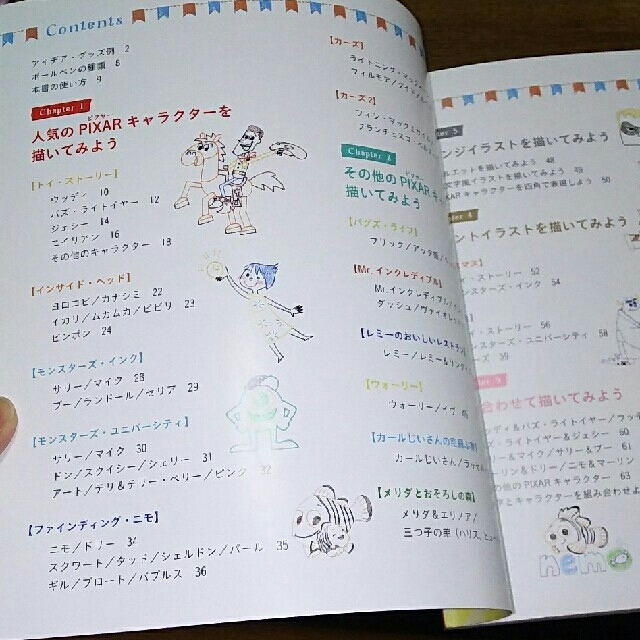 Contents
アイデア・グッズ例 2
ボールペンの種類 6
本書の使い方 9
Chapter 1
ピクサー
人気のPIXARキャラクターを
描いてみよう
【トイ・ストーリー】
ウッディ 10
バズ・ライトイヤー 12
ジェシー 14
エイリアン 16
その他のキャラクター 18
【インサイド・ヘッド】
ヨロコビ/カナシミ 22
イカリ/ムカムカ/ビビリ 23
ビンボン 24
【モンスターズ・インク】
サリー/マイク 28
ブー/ランドール/セリア 29
【モンスターズ・ユニバーシティ】
サリー/マイク 30
ドン/スクイシー/シェリー 31
アート/テリ&テリー・ペリー/ピンク 32
【ファインディング・ニモ】
ニモ/ドリー 34
スクワート/タッド/シェルドン/パール 35
ギル/ブロート/バブルス 36
【カーズ】
ライトニング・
フィルモア/
【カーズ2】
フィン・マックミサイル
フランチェスコ・
Chapter 2
ピクサー
その他のPIXARキ
描いてみよう
【バグズ・ライフ】
フリック/アッタ
【Mr.インクレディブル】
Mr.インクレディブル/
ダッシュ/ヴァイオレット
【レミーのおいしいレストラン】
レミー/レミー&リングイニ
【ウォーリー】
ウォーリー/イヴ
【カールじいさんの空飛ぶ家】
カールじいさん/ラッセル
【メリダとおそろしの森】
メリダ&エリノア/
三つ子の弟(ハリス、ヒューバ
3
ンジイラストを描いてみよう
ルエットを描いてみよう 48
文字風イラストを描いてみよう 49
XARキャラクターを四角で表現しよう 50
4
ントイラストを描いてみよう
マス】
・ストーリー 52
ンスターズ・インク 54
・ストーリー 56
ンスターズ・ユニバーシティ 58
ズ 59
合わせて描いてみよう
ディ&バズ・ライトイヤー/ウッデ
・ライトイヤー&ジェシー 60
&マイク/サリー&ブー 61
ーリン&ドリー/ニモ&マーリン
他のPIXARキャラクター 63
とキャラクターを組み合わせよ
nemo